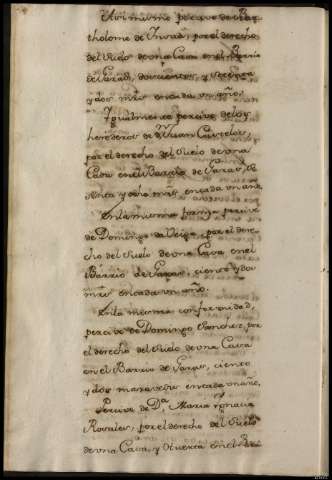 Asi mismo percive de Bar-
tholome de , por el derecho
del Suelo de una Casa en el Barrio
de Garas, doscientos, y setenta
y dos mrs en cada un año.
Igualmente percive de los
herederos de Juan Cavezos,
por el derecho del Suelo de una
Casa en el Barrio de Garas,
y ocho mrs en cada un año
En la misma forma percive
de Domingo de Veiga, por el dere-
cho del Suelo de una Casa en el
Barrio de Garas, ciento y dos
mrs en cada un año.
En la misma conformidad,
percive de Domingo Sanchez, por
el derecho del Suelo de una Casa
en el Barrio de Garas, ciento
y dos maravedis en cada un año,
Percive de Da. Maria Ignacia
Rosales, por el derecho del Suelo
de una Casa, y Huerta en el Ba-